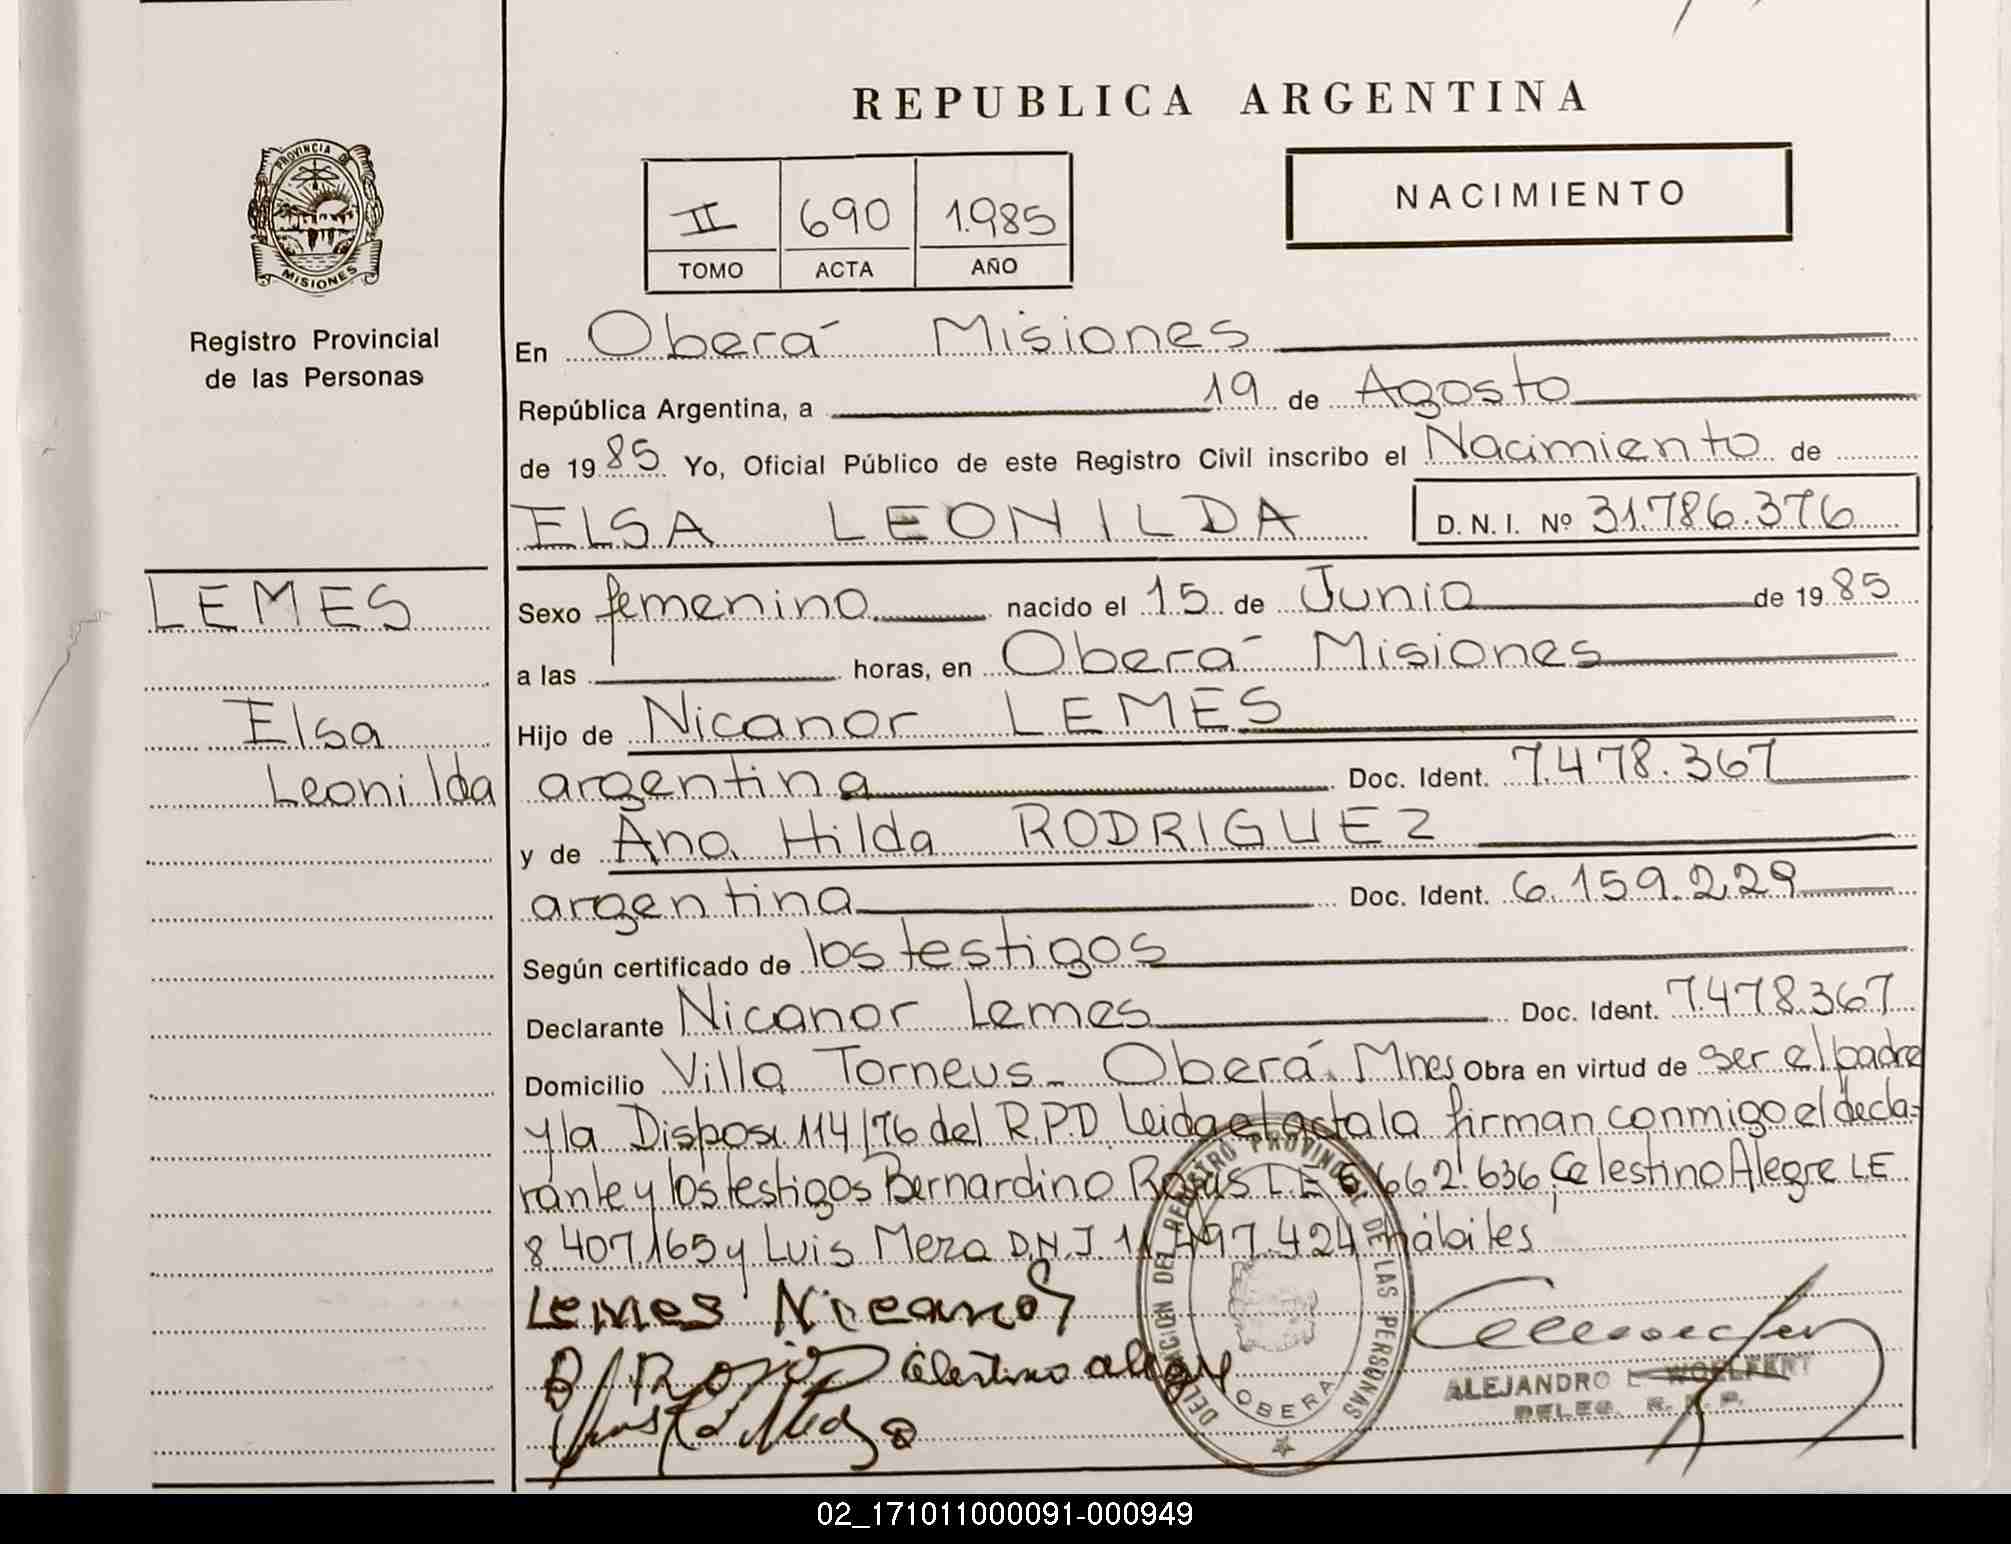 REPUBLICA ARGENTINA
PROVINCIA DE
MISIONES
Registro Provincial
de las Personas
II 690 1.985
TOMO ACTA AÑO
NACIMIENTO
En Oberá Misiones
República Argentina, a 19 de Agosto
de 1985 Yo, Oficial Público de este Registro Civil inscribo el Nacimiento de
ELSA LEONILDA D. N. I. Nº 31.786.376
LEMES
Elsa
Leonilda
Sexo femenino nacido el 15 de Junio de 1985
a las horas, en Oberá Misiones
Hijo de Nicanor LEMES
argentina Doc. Ident. 7.478.367
y de Ana Hilda RODRIGUEZ
argentina Doc. Ident. 6.159.229
Según certificado de los testigos
Declarante Nicanor Lemes Doc. Ident. 7.478.367
Domicilio Villa Torneus - Oberá. Mnes Obra en virtud de ser el padre
y la Disposi 114/76 del R.P.D Leida el acta la firman conmigo el decla-
rante y los testigos Bernardino Rojas L E 5.662.636, Celestino Alegre LE
8 407.165 y Luis Meza D.N.I. 11.497.424 hábiles
Lemes Nicanor
B Rojas Celestino alegre
DELEGACION DEL REGISTRO PROVINCIAL DE LAS PERSONAS
OBERA
ALEJANDRO L. WOELFERT
DELEG. R. P. P.
02_171011000091-000949